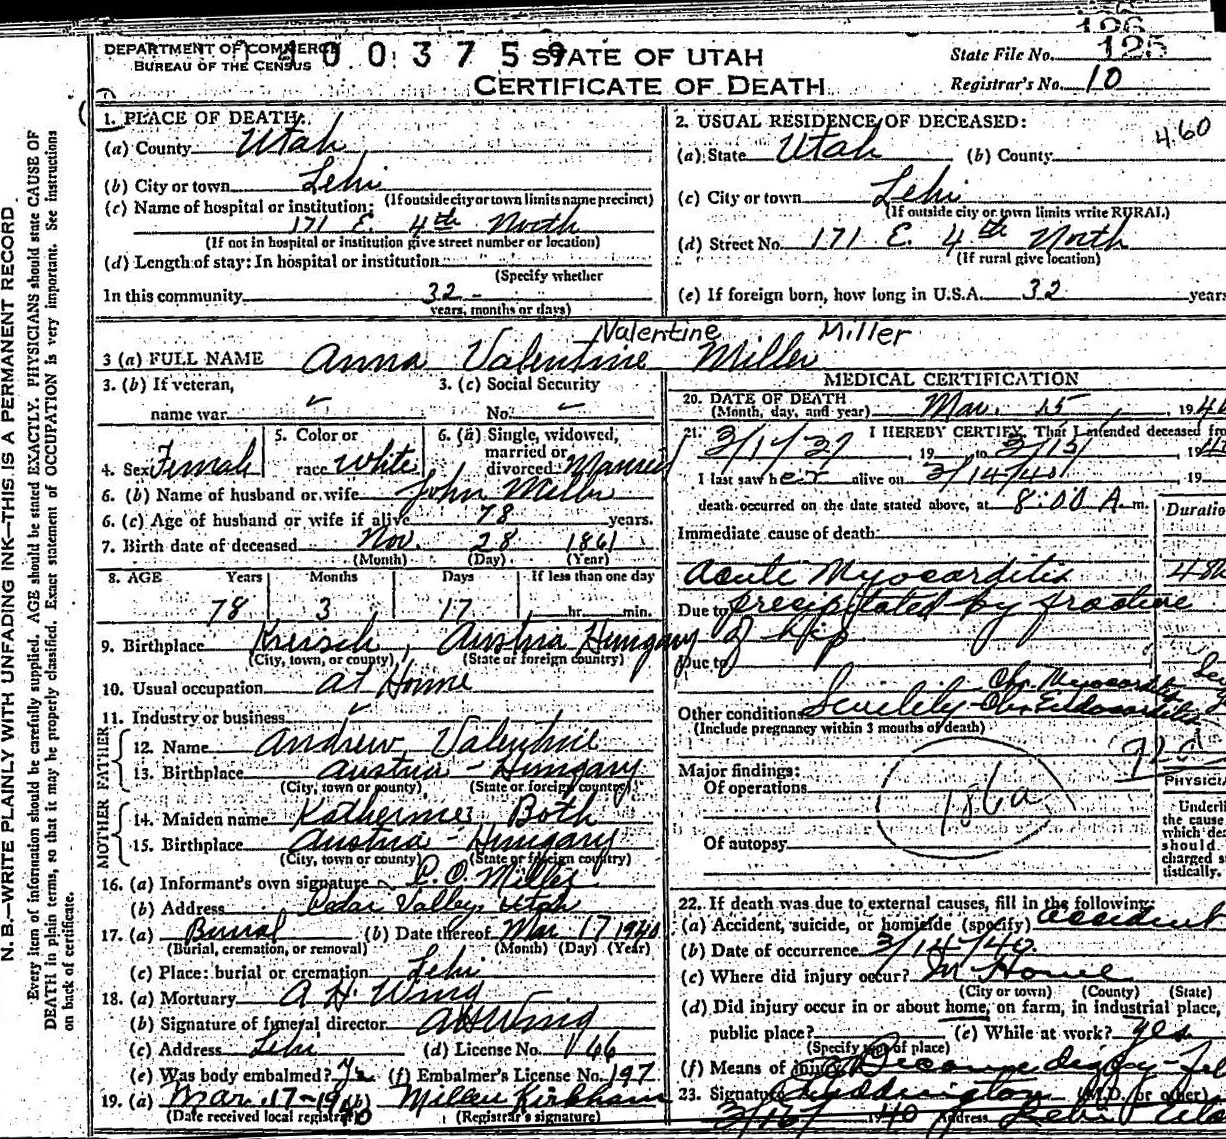 126
DEPARTMENT OF COMMERCE 0 0 3 7 5 9 STATE OF UTAH State File No. 125
BUREAU OF THE CENSUS CERTIFICATE OF DEATH Registrar's No. 10
1. PLACE OF DEATH: 2. USUAL RESIDENCE OF DECEASED: 460
(a) County Utah (a) State Utah (b) County
(b) City or town Lehi (c) City or town Lehi
(If outside city or town limits name precinct) (If outside city or town limits write RURAL)
(c) Name of hospital or institution:
171 E. 4th North (d) Street No. 171 E. 4th North
(If not in hospital or institution give street number or location) (If rural give location)
(d) Length of stay: In hospital or institution
(Specify whether
In this community 32 (e) If foreign born, how long in U.S.A. 32 years
years, months or days)
Valentine Miller
3 (a) FULL NAME Anna Valentine Miller
3. (b) If veteran, 3. (c) Social Security MEDICAL CERTIFICATION
name war No. 20. DATE OF DEATH
(Month, day, and year) Mar. 15, 194
5. Color or 6. (a) Single, widowed, 21. I HEREBY CERTIFY, That I attended deceased
married or 19 to 3/15/ 19
4. Sex Female race White divorced Married I last saw her alive on 3/14/40 19
6. (b) Name of husband or wife John Miller death occurred on the date stated above, at 8:00 A. m.
6. (c) Age of husband or wife if alive 78 years. Duratio
7. Birth date of deceased Nov. 28 1861 Immediate cause of death:
(Month) (Day) (Year)
8. AGE Years Months Days If less than one day Acute Myocarditis
78 3 17 hr. min. Due to precipitated by fracture
of hip
9. Birthplace Austria Hungary Due to
(City, town, or county) (State or foreign country)
10. Usual occupation at Home Chr. Myocarditis
11. Industry or business Other conditions Senility - Chr. Endocarditis
(Include pregnancy within 3 months of death)
FATHER
12. Name Andrew Valentine
13. Birthplace Austria - Hungary Major findings:
(City, town or county) (State or foreign country) Of operations 186a
PHYSICIA
MOTHER
14. Maiden name Katherine Both Underli
15. Birthplace Austria - Hungary Of autopsy the cause
(City, town or county) (State or foreign country) which de
should
charged s
tistically.
16. (a) Informant's own signature P. O. Miller
(b) Address Cedar Valley Utah 22. If death was due to external causes, fill in the following:
17. (a) Burial (b) Date thereof Mar 17 1940 (a) Accident, suicide, or homicide (specify) accident
(Burial, cremation, or removal) (Month) (Day) (Year) (b) Date of occurrence 3/14/40
(c) Place: burial or cremation Lehi (c) Where did injury occur? In Home
(City or town) (County) (State)
18. (a) Mortuary A. H. Wing (d) Did injury occur in or about home, on farm, in industrial place,
(b) Signature of funeral director A H Wing public place? (e) While at work? yes
(Specify type of place)
(c) Address Lehi (d) License No. 166 (f) Means of injury
(e) Was body embalmed? Yes (f) Embalmer's License No. 197 23. Signature (M.D. or other)
19. (a) Mar. 17-1940 (b) Millen Kirkham 3/16/ 1940 Address Lehi
(Date received local registrar) (Registrar's signature)
N. B.—WRITE PLAINLY WITH UNFADING INK—THIS IS A PERMANENT RECORD
Every item of information should be carefully supplied. AGE should be stated EXACTLY. PHYSICIANS should state CAUSE OF
DEATH in plain terms, so that it may be properly classified. Exact statement of OCCUPATION is very important. See instructions
on back of certificate.